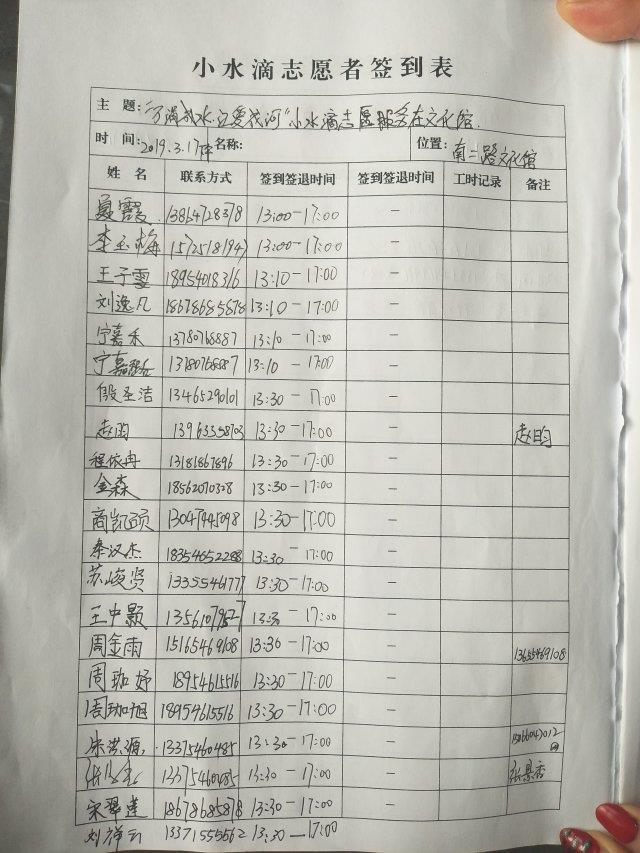 小水滴志愿者签到表
主 题: "万滴成水·让爱成河"小水滴志愿服务在文化馆.
时 间: 2019.3.17 名称: 位置: 南二路文化馆
姓 名 联系方式 签到签退时间 签到签退时间 工时记录 备注
夏霞 13854728378 13:00-17:00 —
李玉梅 15725181947 13:00-17:00 —
王子雯 18954018316 13:10-17:00 —
刘逸凡 18678685878 13:10-17:00 —
宁嘉禾 13780768887 13:10-17:00 —
宁嘉 13780768887 13:10-17:00 —
段圣洁 13465290101 13:30-17:00 —
赵昀 13963358703 13:30-17:00 — 赵昀
程依冉 13181867896 13:30-17:00 —
金森 18562070328 13:30-17:00 —
商凯硕 13047441098 13:30-17:00 —
秦汉杰 18354652288 13:30-17:00 —
苏峻贤 13355461777 13:30-17:00 —
王中颢 13561079527 13:30-17:00 —
周金雨 15165469108 13:30-17:00 — 13655469108
周珈妤 18954615516 13:30-17:00 —
周珈旭 18954615516 13:30-17:00 —
朱洪源 13375460485 13:30-17:00 —
13375460485 13:30-17:00 — 张景香
宋翠莲 18678685878 13:30-17:00 —
刘祥云 13371555562 13:30-17:00